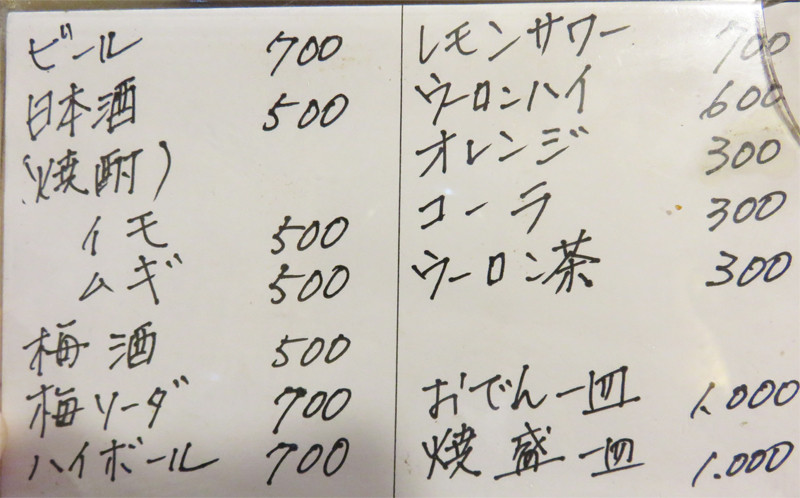 ビール 700
日本酒 500
(焼酎)
イモ 500
ムギ 500
梅酒 500
梅ソーダ 700
ハイボール 700
レモンサワー 700
ウーロンハイ 600
オレンジ 300
コーラ 300
ウーロン茶 300
おでん一皿 1.000
焼盛一皿 1.000